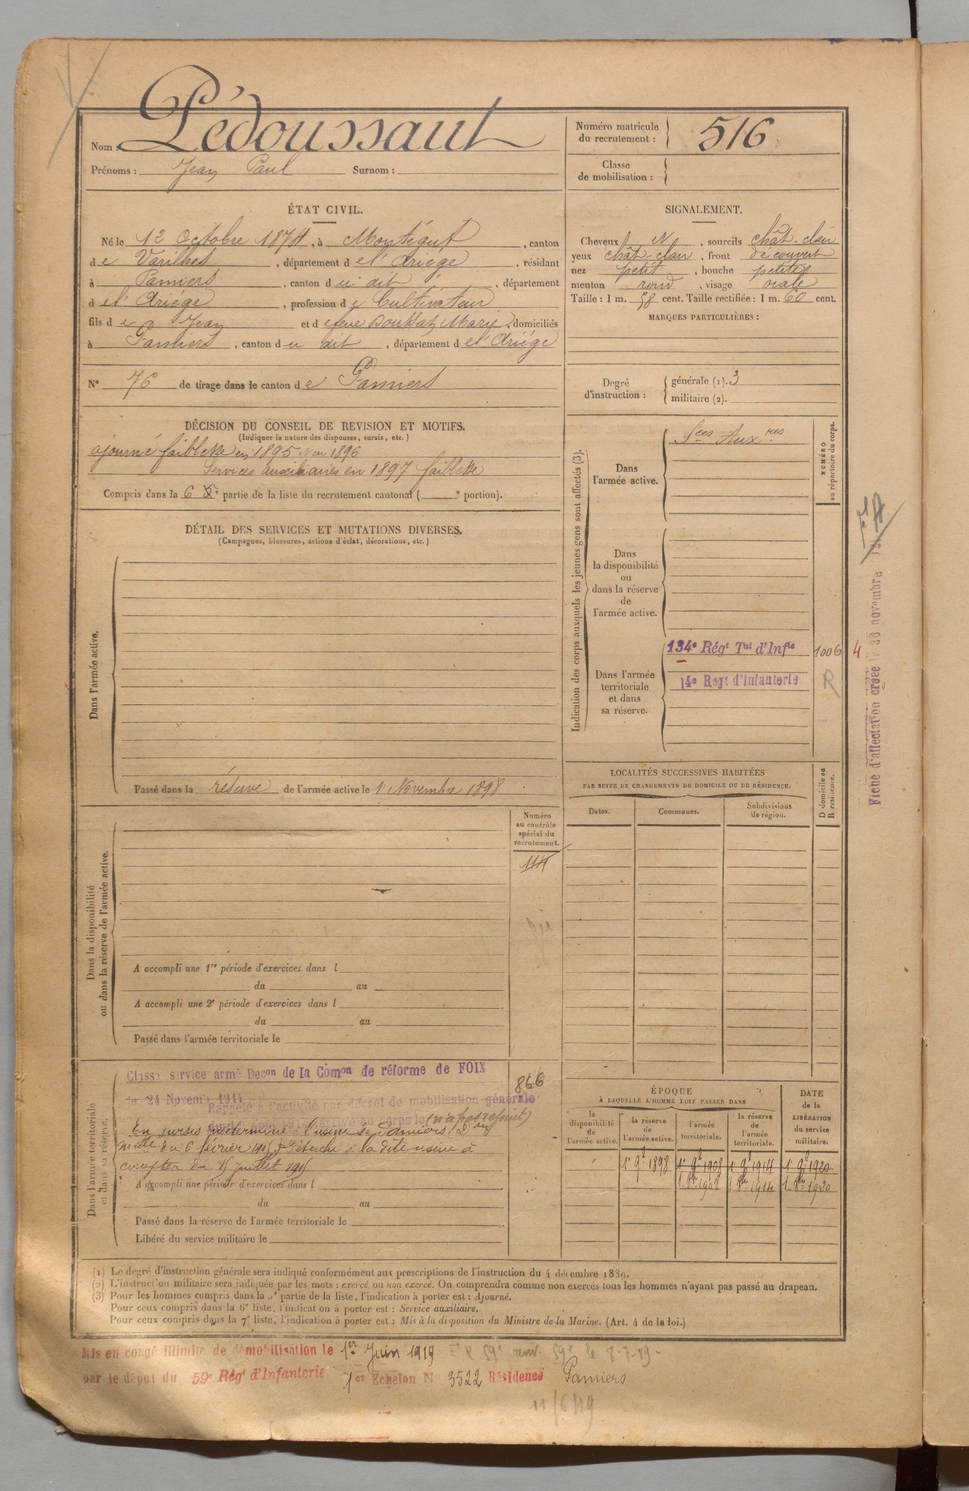 Nom : Pédoussaut
Prénoms : Jean Paul Surnom :
Numéro matricule du recrutement : 516
Classe de mobilisation :
ÉTAT CIVIL.
Né le 12 Octobre 1874, à Montégut, canton
de Varilhes, département de l'Ariège, résidant
à Pamiers, canton du dit, département
de l'Ariège, profession de Cultivateur
fils de Jean et de feue Marie, domiciliés
à Pamiers, canton du dit, département de l'Ariège
N° 76 de tirage dans le canton de Pamiers
SIGNALEMENT.
Cheveux N, sourcils chât. clair
yeux chât. clair, front découvert
nez petit, bouche petite
menton rond, visage ovale
Taille : 1 m. 58 cent. Taille rectifiée : 1 m. 60 cent.
MARQUES PARTICULIÈRES :
Degré d'instruction : générale (1). 3
militaire (2).
DÉCISION DU CONSEIL DE REVISION ET MOTIFS.
(Indiquer la nature des dispenses, sursis, etc.)
ajourné faiblesse en 1895 1896
Services auxiliaires en 1897 faiblesse
Compris dans la 6e partie de la liste du recrutement cantonal ( e portion).
DÉTAIL DES SERVICES ET MUTATIONS DIVERSES.
(Campagnes, blessures, actions d'éclat, décorations, etc.)
Dans l'armée active.
Passé dans la réserve de l'armée active le 1 Novembre 1898
Indication des corps auxquels les jeunes gens sont affectés (3).
NUMÉRO au répertoire du corps.
Dans l'armée active.
Sces Auxres
Dans la disponibilité ou dans la réserve de l'armée active.
Dans l'armée territoriale et dans sa réserve.
134e Régt Tal d'Infie 1006
14e Regt d'Infanterie R
4
Fiche d'affectation créée le 30 novembre
LOCALITÉS SUCCESSIVES HABITÉES
PAR SUITE DE CHANGEMENTS DE DOMICILE OU DE RÉSIDENCE.
Dates. Communes. Subdivisions de région. D domicile ou R résidence.
Dans la disponibilité ou dans la réserve de l'armée active.
Numéro au contrôle spécial du recrutement.
A accompli une 1re période d'exercices dans l
du au
A accompli une 2e période d'exercices dans l
du au
Passé dans l'armée territoriale le
Dans l'armée territoriale et dans sa réserve.
Classé service armé Decon de la Comon de réforme de FOIX
du 24 Novembre 1914 866
Rappelé à l'activité par décret de mobilisation générale
En sursis l'usine de Pamiers
6 février 1915 Détaché à la dite usine à
compter du 15 juillet 1915
A accompli une période d'exercices dans l
du au
Passé dans la réserve de l'armée territoriale le
Libéré du service militaire le
ÉPOQUE
À LAQUELLE L'HOMME DOIT PASSER DANS
la disponibilité de l'armée active. la réserve de l'armée active. l'armée territoriale. la réserve de l'armée territoriale.
DATE de la LIBÉRATION du service militaire.
1er 9bre 1898 1er 9bre 1908 1er 9bre 1914 1er 9bre 1920
1 8bre 1908 1 8bre 1914 1 8bre 1920
(1) Le degré d'instruction générale sera indiqué conformément aux prescriptions de l'instruction du 4 décembre 1889.
(2) L'instruction militaire sera indiquée par les mots : exercé ou non exercé. On comprendra comme non exercés tous les hommes n'ayant pas passé au drapeau.
(3) Pour les hommes compris dans la partie de la liste, l'indication à porter est : Ajourné.
Pour ceux compris dans la 6e liste, l'indication à porter est : Service auxiliaire.
Pour ceux compris dans la 7e liste, l'indication à porter est : Mis à la disposition du Ministre de la Marine. (Art. 4 de la loi.)
Mis en congé illimité de démobilisation le 1er Juin 1919
par le dépôt du 59e Régt d'Infanterie 1er Echelon N° 3522 Résidence Pamiers
11/6/19